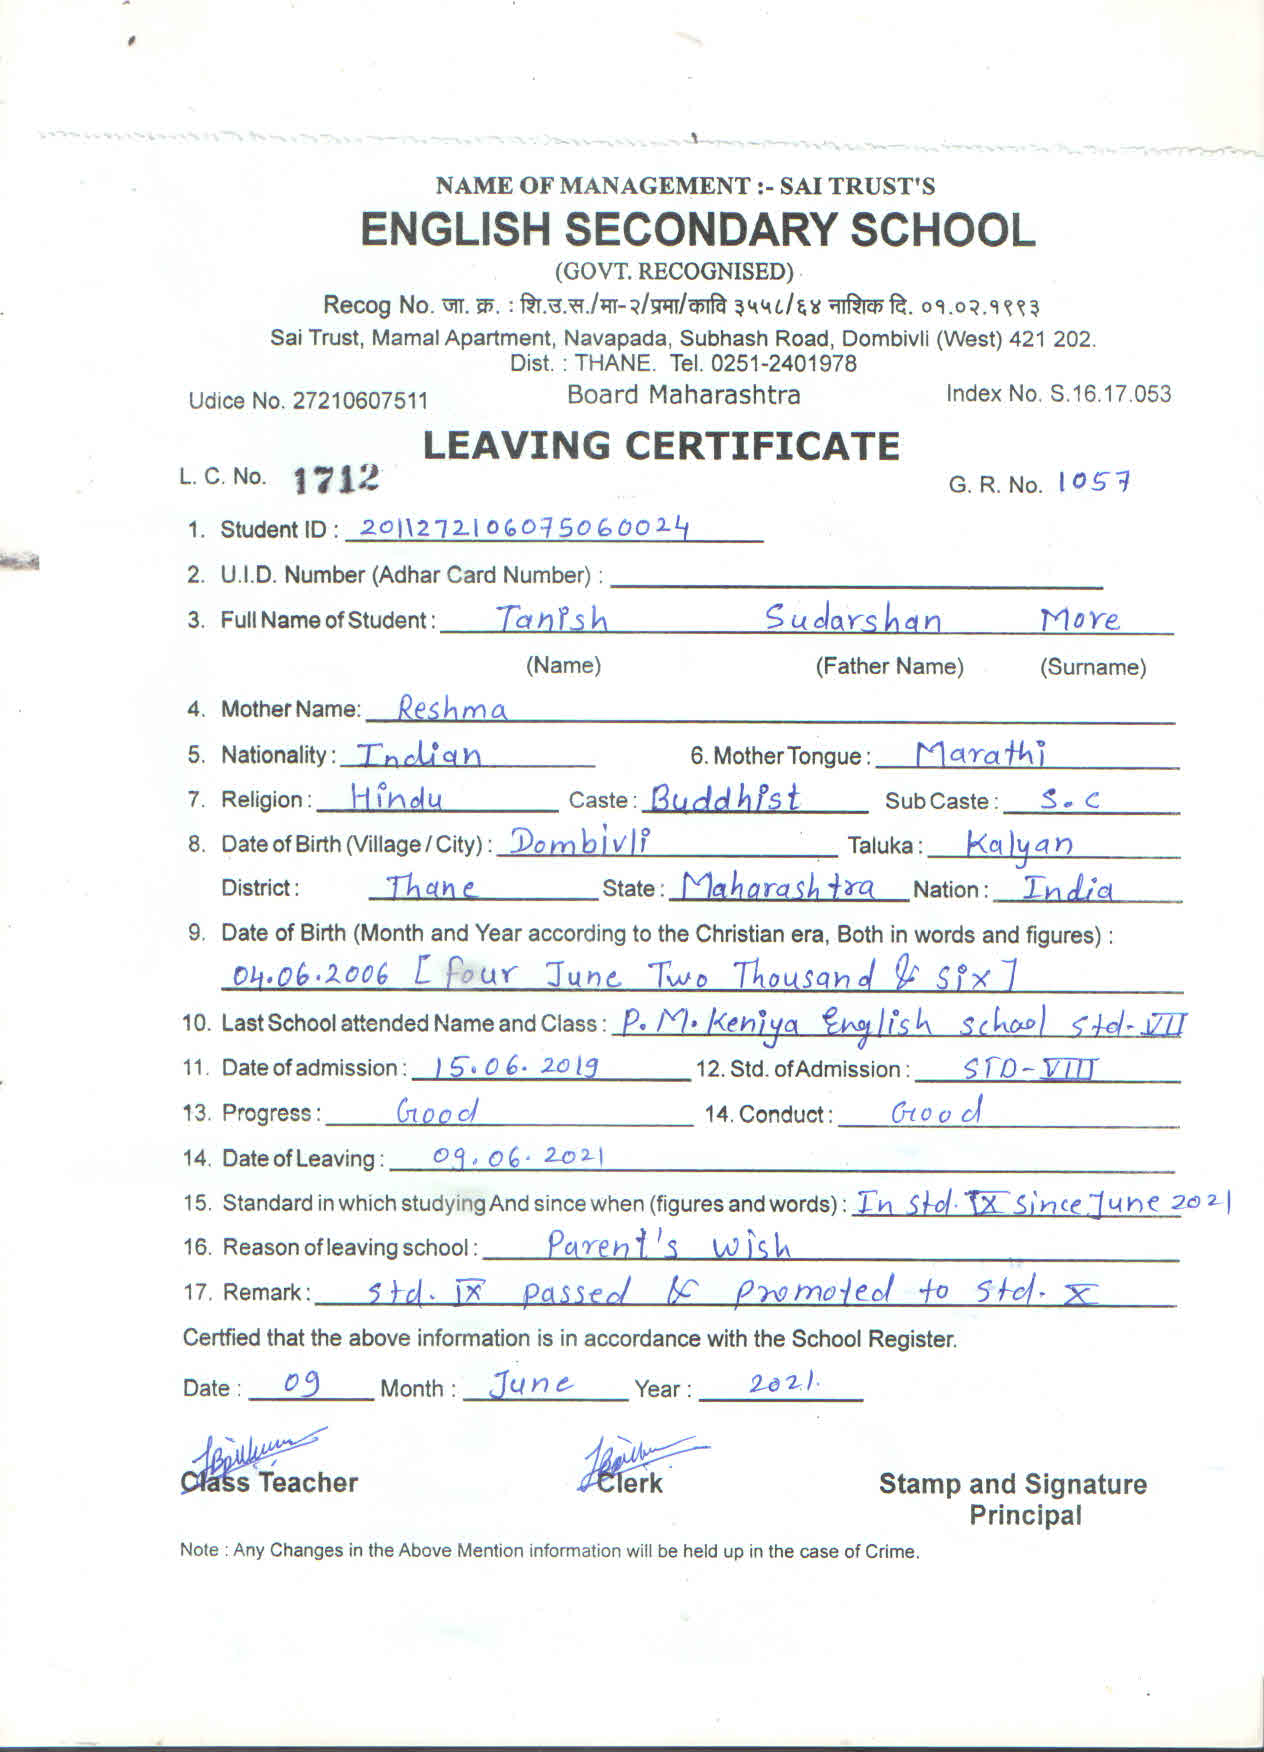 NAME OF MANAGEMENT :- SAI TRUST'S
ENGLISH SECONDARY SCHOOL
(GOVT. RECOGNISED)
Recog No. जा. क्र. : शि.उ.स./मा-२/प्रमा/कावि ३५५८/६४ नाशिक दि. ०१.०२.१९९३
Sai Trust, Mamal Apartment, Navapada, Subhash Road, Dombivli (West) 421 202.
Dist. : THANE. Tel. 0251-2401978
Udice No. 27210607511 Board Maharashtra Index No. S.16.17.053
LEAVING CERTIFICATE
L. C. No. 1712 G. R. No. 1057
1. Student ID : 2011272106075060024
2. U.I.D. Number (Adhar Card Number) :
3. Full Name of Student : Tanish Sudarshan More
(Name) (Father Name) (Surname)
4. Mother Name: Reshma
5. Nationality : Indian 6. Mother Tongue : Marathi
7. Religion : Hindu Caste : Buddhist Sub Caste : S.C
8. Date of Birth (Village / City) : Dombivli Taluka : Kalyan
District : Thane State : Maharashtra Nation : India
9. Date of Birth (Month and Year according to the Christian era, Both in words and figures) :
04.06.2006 [ four June Two Thousand & six ]
10. Last School attended Name and Class : P. M. Keniya English school std-VII
11. Date of admission : 15.06.2019 12. Std. of Admission : STD-VIII
13. Progress : Good 14. Conduct : Good
14. Date of Leaving : 09.06.2021
15. Standard in which studying And since when (figures and words) : In std. IX since June 2021
16. Reason of leaving school : Parent's wish
17. Remark : std. IX passed & promoted to std. X
Certfied that the above information is in accordance with the School Register.
Date : 09 Month : June Year : 2021.
Class Teacher Clerk Stamp and Signature
Principal
Note : Any Changes in the Above Mention information will be held up in the case of Crime.